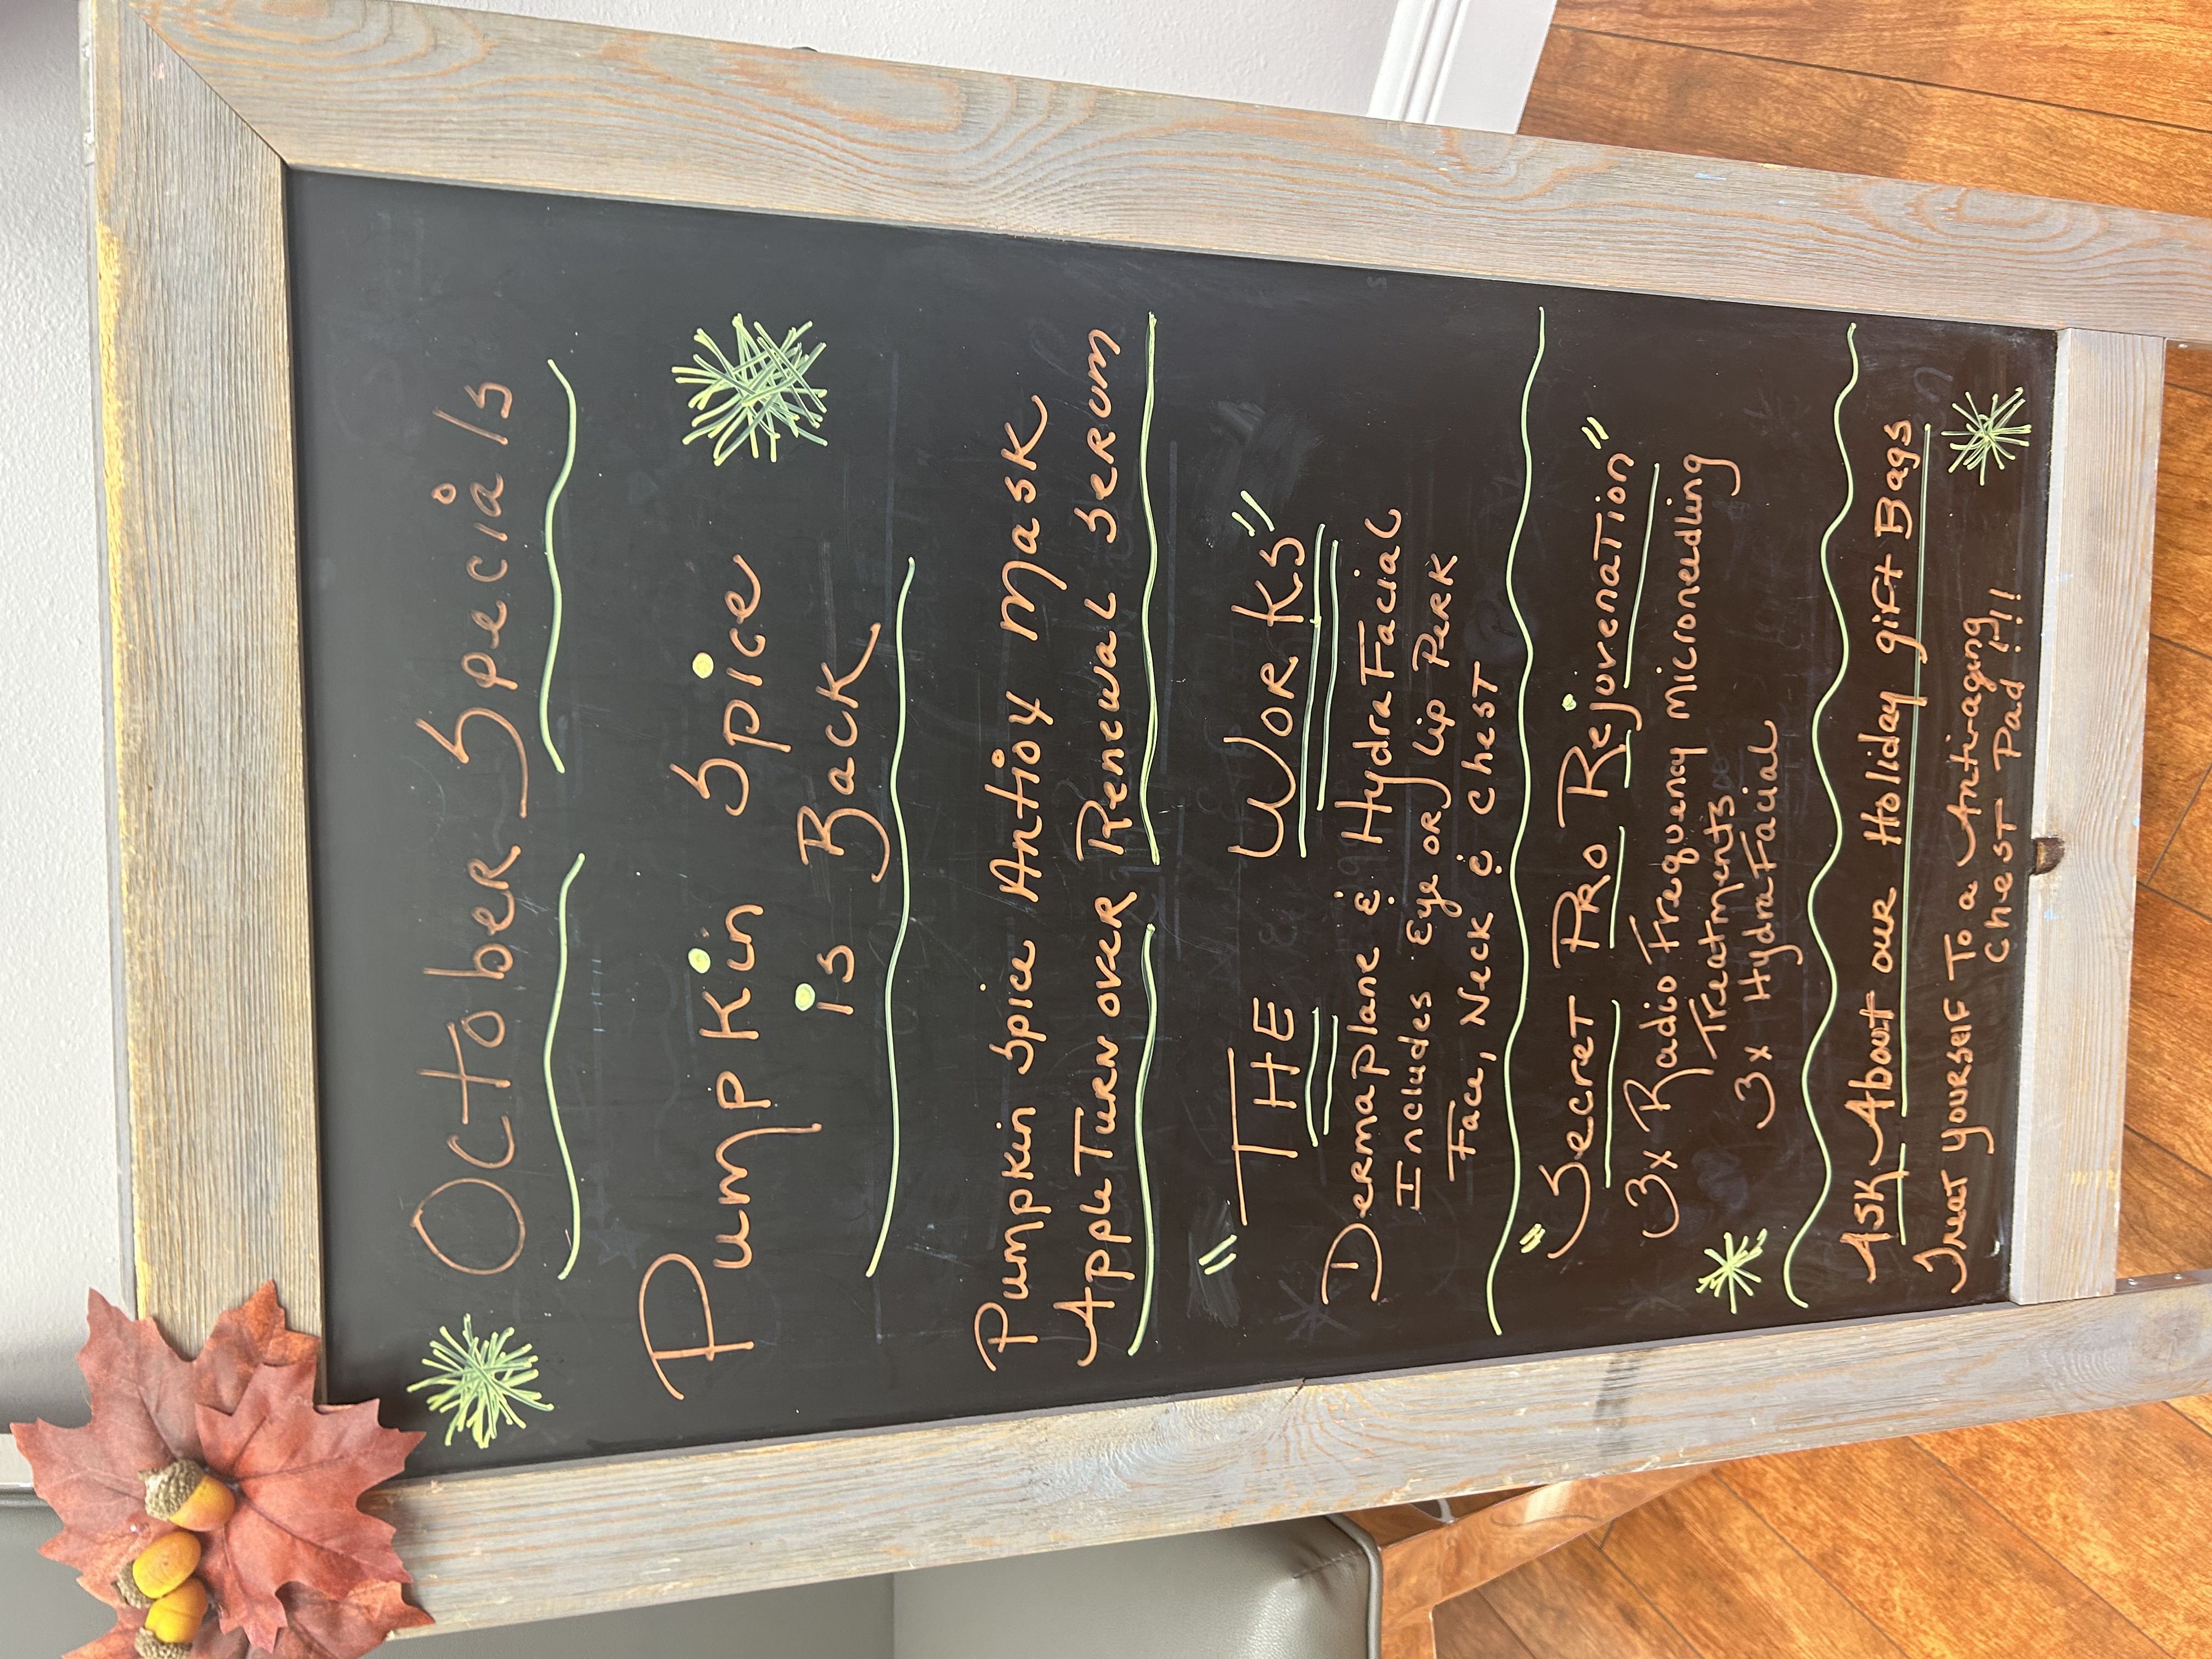 October Specials
Pumpkin Spice
is Back
Pumpkin Spice Antioy Mask
Apple Turn over Renewal Serum
"THE WORKS"
Dermaplane & HydraFacial
Includes Eye or Lip Perk
Face, Neck & Chest
"Secret Pro Rejuvenation"
3x Radio Frequency Microneedling
Treatments
3x HydraFacial
Ask About our Holiday gift Bags
Treat yourself To a Antiaging
Chest Pad!!!